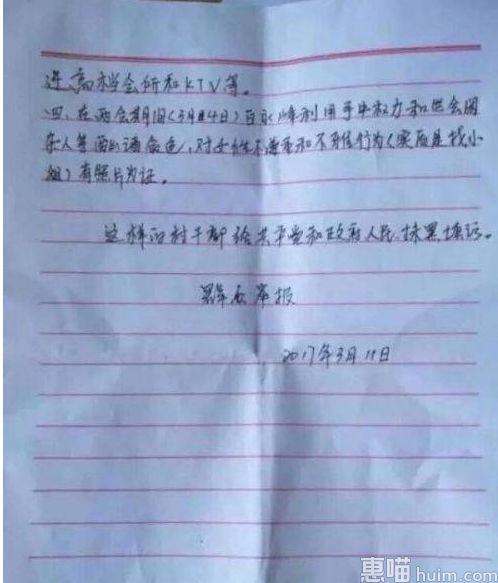 进高档会所和KTV等。
四、在两会期间(3月14日)百永峰利用手中权力和社会闲
杂人等酒山酒食色,对女性不尊重和不雅行为(实为是找小
姐)有照片为证。
这样的村干部给共产党和政府人民抹黑
群众举报
2017年3月18日
惠喵
huim.com